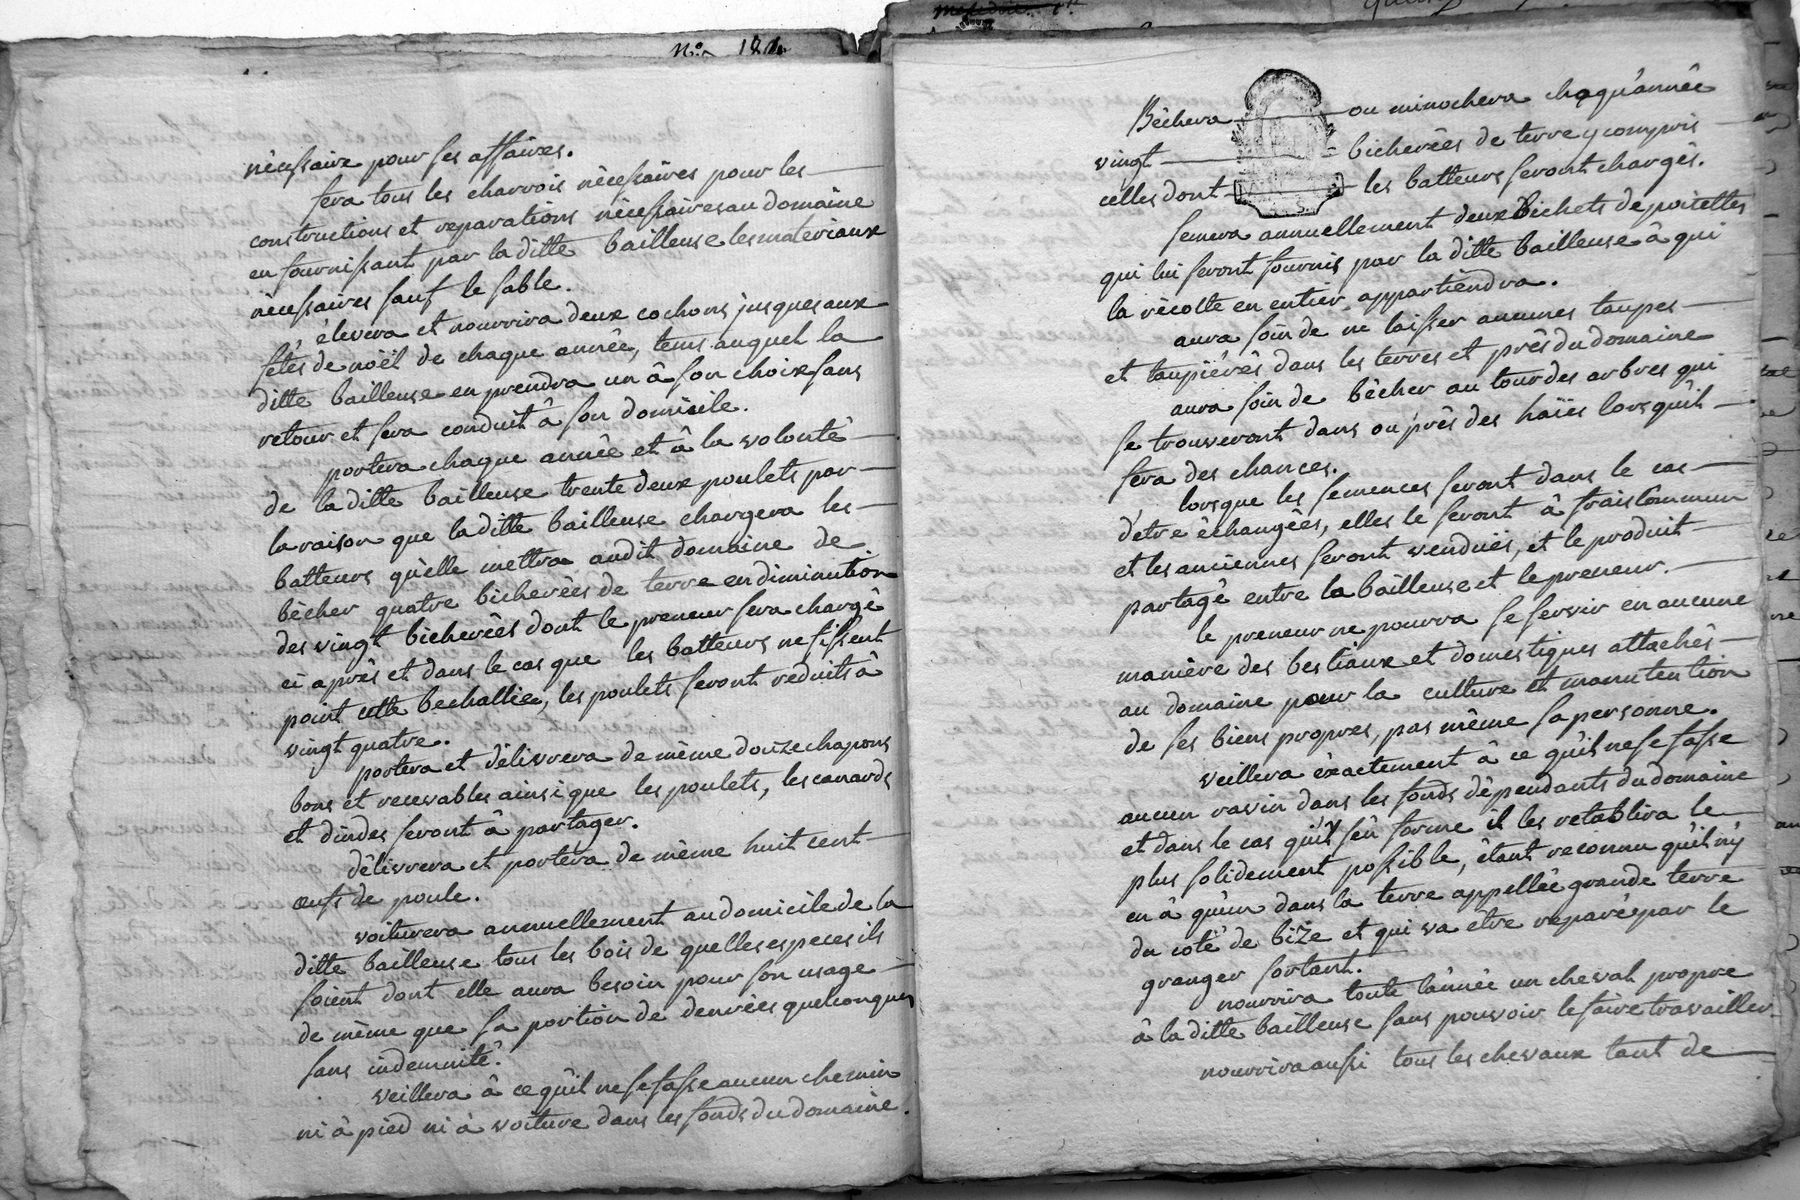 N.o
nécessaire pour ses affaires.
fera tous les charrois nécessaires pour les
constructions et reparations nécessaires au domaine
en fournissant par la ditte bailleuse les materiaux
nécessaires sauf le sable.
élevera et nourrira deux cochons jusques aux
fêtes de noël de chaque année, tems auquel la
ditte bailleuse en prendra un à son choix sans
retour et sera conduit à son domicile.
portera chaque année et à la volonté
de la ditte bailleuse trente deux poulets par
la raison que la ditte bailleuse chargera les
batteurs qu'elle mettra audit domaine de
bêcher quatre bicherées de terre en diminution
des vingt bicherées dont le preneur sera chargé
ci après et dans le cas que les batteurs ne fissent
point cette bechallice, les poulets seront reduits à
vingt quatre.
portera et délivrera de même douze chapons
bons et recevables ainsi que les poulets, les canards
et dindes seront à partager.
délivrera et portera de même huit cent
œufs de poule.
voiturera annuellement au domicile de la
ditte bailleuse tous les bois de quelles especes ils
soient dont elle aura besoin pour son usage
de même que sa portion de denrées quelconques
sans indemnité.
veillera à ce qu'il ne se fasse aucun chemin
ni à pied ni à voiture dans les fonds du domaine.
Bêchera ou minochera chaqu'année
vingt bicherées de terre y compris
celles dont les batteurs seront chargés.
semera annuellement deux Bichets de poisettes
qui lui seront fournis par la ditte bailleuse à qui
la récolte en entier appartiendra.
aura soin de ne laisser aucunes taupes
et taupiérés dans les terres et prés du domaine
aura soin de bêcher au tour des arbres qui
se trouveront dans ou près des haïes lorsqu'il
fera des chances.
lorsque les semences seront dans le cas
d'etre échangées, elles le seront à frais Commun
et les anciennes seront vendues, et le produit
partagé entre la bailleuse et le preneur.
le preneur ne pourra se servir en aucune
manière des bestiaux et domestiques attachés
au domaine pour la culture et manutention
de ses biens propres, pas même sa personne.
veillera éxactement à ce qu'il ne se fasse
aucun ravin dans les fonds dépendants du domaine
et dans le cas qu'il s'en forme il les retablira le
plus solidement possible, étant reconnu qu'il n'y
en à qu'un dans la terre appellée grande terre
du coté de bize et qui va être reparée par le
granger sortant.
nourrira toute l'année un cheval propre
à la ditte bailleuse sans pouvoir le faire travailler.
nourrira aussi tous les chevaux tant de